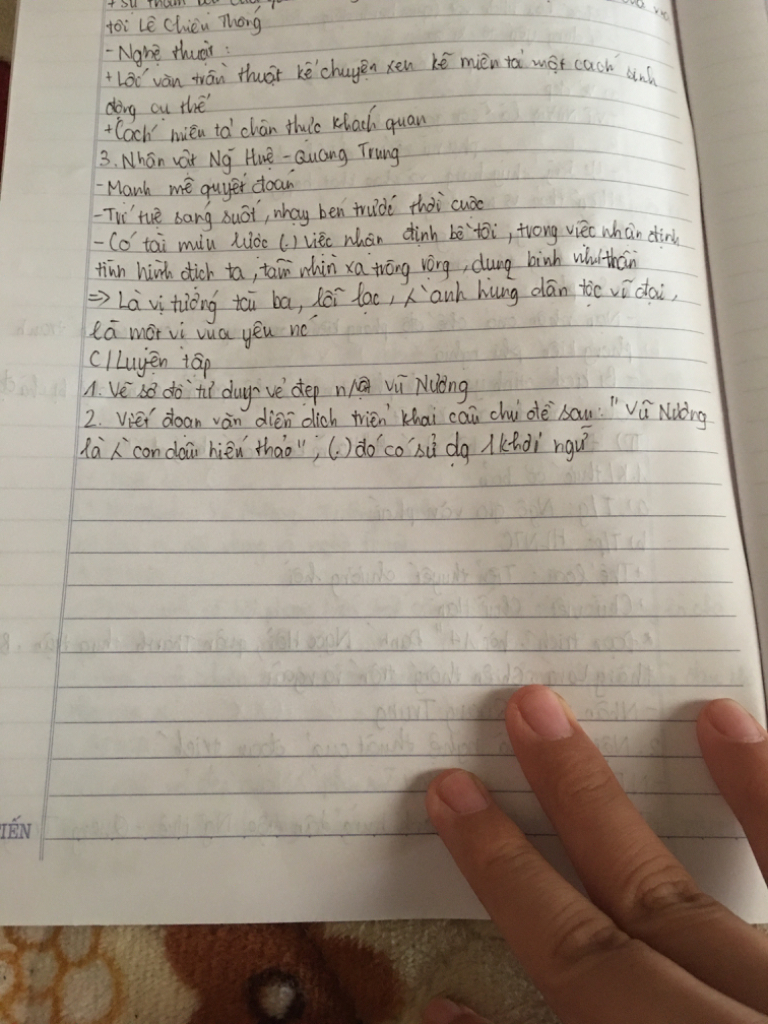 + Sự thảm bại của
tôi Lê Chiêu Thống
- Nghệ thuật :
+ Lối văn trần thuật kể chuyện xen kẽ miên tả một cách sinh
động cụ thể
+ Cách miêu tả chân thực khách quan
3. Nhân vật Ng Huệ - Quang Trung
- Mạnh mẽ quyết đoán
- Trí tuệ sáng suốt, nhạy bén trước thời cuộc
- Có tài mưu lược (.) việc nhận định bề tôi, trong việc nhận định
tình hình địch ta, tầm nhìn xa trông rộng, dụng binh như thần
=> Là vị tướng tài ba, lỗi lạc, anh hùng dân tộc vĩ đại,
là một vị vua yêu nc
C/ Luyện tập
1. Vẽ sơ đồ tư duy vẻ đẹp n/v Vũ Nương
2. Viết đoạn văn diễn dịch triển khai câu chủ đề sau: "Vũ Nương
là con dâu hiếu thảo", (.) đó có sử dg 1 khởi ngữ
TIẾN